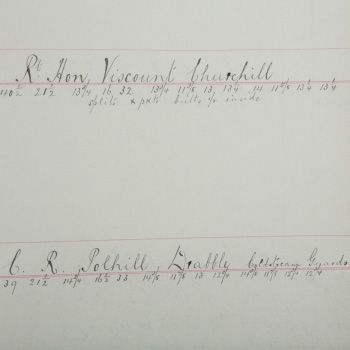 Rt Hon, Viscount Churchill
40½ 21½ 13¾ 16 32 13¾ 11⅝ 13 13¼ 14 11⅝ 13¼ 13¼
splits & pkts butts inside
C. R. Polhill, Drabble Coldstream Guards
39 21½ 14¼ 16½ 33 14⅛ 11⅝ 13 12¾